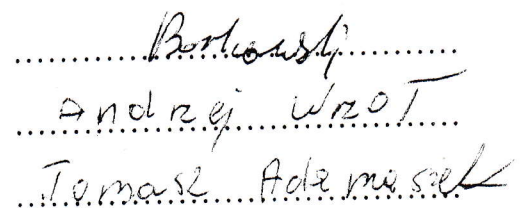 Borkowski
Andrzej Wrzoł
Tomasz Adamasiek